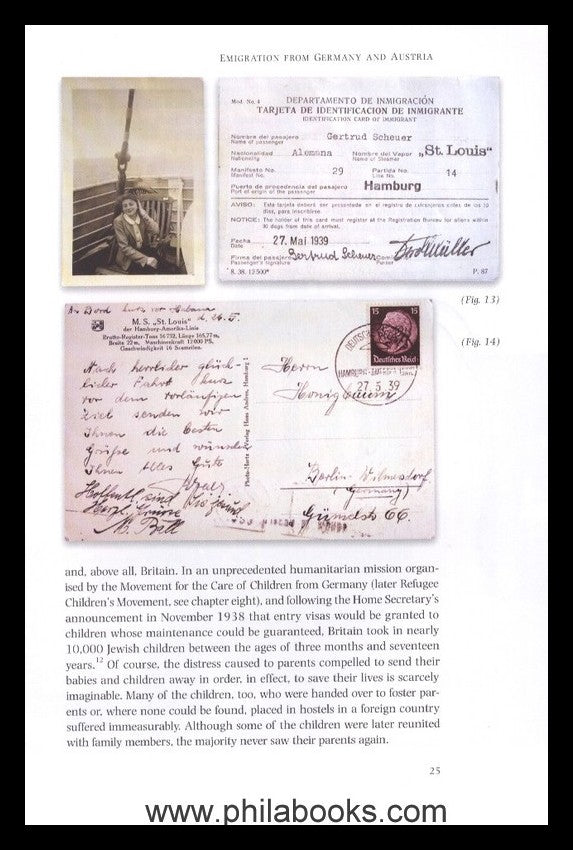 EMIGRATION FROM GERMANY AND AUSTRIA
Mod. No. 4
DEPARTAMENTO DE INMIGRACIÓN
TARJETA DE IDENTIFICACION DE INMIGRANTE
IDENTIFICATION CARD OF IMMIGRANT
Nombre del pasajero Gertrud Scheuer
Name of passenger
Nacionalidad Alemana Nombre del Vapor „St. Louis“
Nationality Name of Steamer
Manifesto No. 29 Partida No. 14
Manifest No. Line No.
Puerto de procedencia del pasajero Hamburg
Port of origin of the passenger
AVISO: Esta tarjeta deberá ser presentada en el registro de extranjeros antes de los 10
días, para inscribirse.
NOTICE: The holder of this card must register at the Registration Bureau for aliens within
10 days from date of arrival.
Fecha 27. Mai 1939
Date
Firma del pasajero Gertrud Scheuer
Passenger's signature Purser
S. 38. 12500* P. 87
(Fig. 13)
(Fig. 14)
M. S. „St. Louis“
der Hamburg-Amerika-Linie
Brutto-Register-Tons 16732, Länge 165,77 m,
Geschwindigkeit 16 Seemeilen.
15 15
Deutsches Reich
27.5.39
Nach herrlicher glück-
licher Fahrt kurz
vor dem vorläufigen
Ziel senden wir
Ihnen die besten
Grüße und wünschen
Ihnen alles Gute
Herrn
Honigbaum
Berlin Wilmersdorf
(Germany)
66.
and, above all, Britain. In an unprecedented humanitarian mission organ-
ised by the Movement for the Care of Children from Germany (later Refugee
Children's Movement, see chapter eight), and following the Home Secretary's
announcement in November 1938 that entry visas would be granted to
children whose maintenance could be guaranteed, Britain took in nearly
10,000 Jewish children between the ages of three months and seventeen
years.12 Of course, the distress caused to parents compelled to send their
babies and children away in order, in effect, to save their lives is scarcely
imaginable. Many of the children, too, who were handed over to foster par-
ents or, where none could be found, placed in hostels in a foreign country
suffered immeasurably. Although some of the children were later reunited
with family members, the majority never saw their parents again.
25
www.philabooks.com